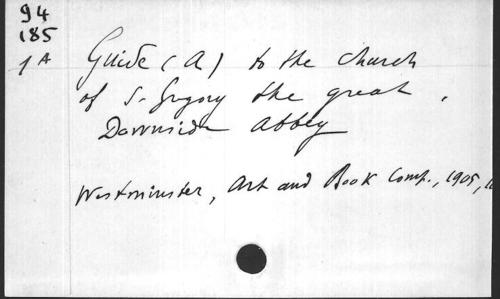 94
185
1A
Guide (A) to the church
of S. Gregory the great,
Downside Abbey
Westminster, Art and Book Comp., 1905,